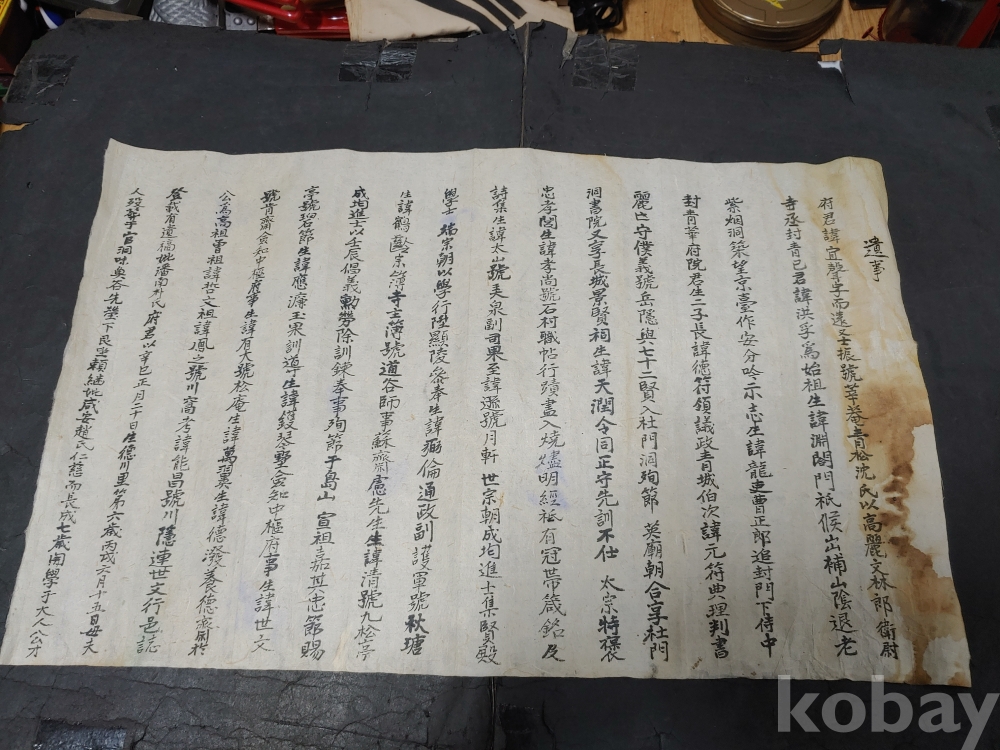 遺事
府君諱宜聲字而遠又士振號華菴青松沈氏以高麗文林郎衛尉
寺丞封青已君諱洪孚爲始祖生諱淵閤門祇候出補山陰退老
紫烟洞築望京臺作安分吟示志生諱龍吏曹正郎追封門下侍中
封青華府院君生二子長諱德符領議政青城伯次諱元符典理判書
麗亡守僕義號岳隱與七十二賢入杜門洞殉節 英廟朝合享杜門
洞書院又享長城景賢祠生諱天潤令同正守先訓不仕 太宗特褒
忠孝閭生諱孝尚號石村職帖行蹟盡入燒燼明經祗有冠世帶箴銘及
詩集生諱太山號美泉副司果至諱遜號月軒 世宗朝成均進士集賢殿
學士 端宗朝以學行陞顯陵參奉生諱彌倫通政副護軍號秋塘
生諱鶴齡宗簿寺主簿號道谷師事蘇齋盧先生生諱清號九松亭
成均進士以壬辰倡義勳勞除訓鍊奉事殉節于島山 宣祖嘉其忠節賜
亭號碧節生諱應濂玉果訓導生諱鍰琴墅僉知中樞府事生諱世文
號肯齋僉知中樞府事生諱有大號松庵生諱萬翼生諱德潑養德
公爲高祖曾祖諱哲文祖諱鳳之號川窩考諱能昌號川隱連世文行邑誌
登載有遺稿妣潘南朴氏府君以辛巳正月二十日生德川里第六歲丙戌六月十五日母夫
人殁葬于官洞味奥谷先塋下民坐賴繼妣咸安趙氏仁慈而長成七歲開學于大人公才
kobay